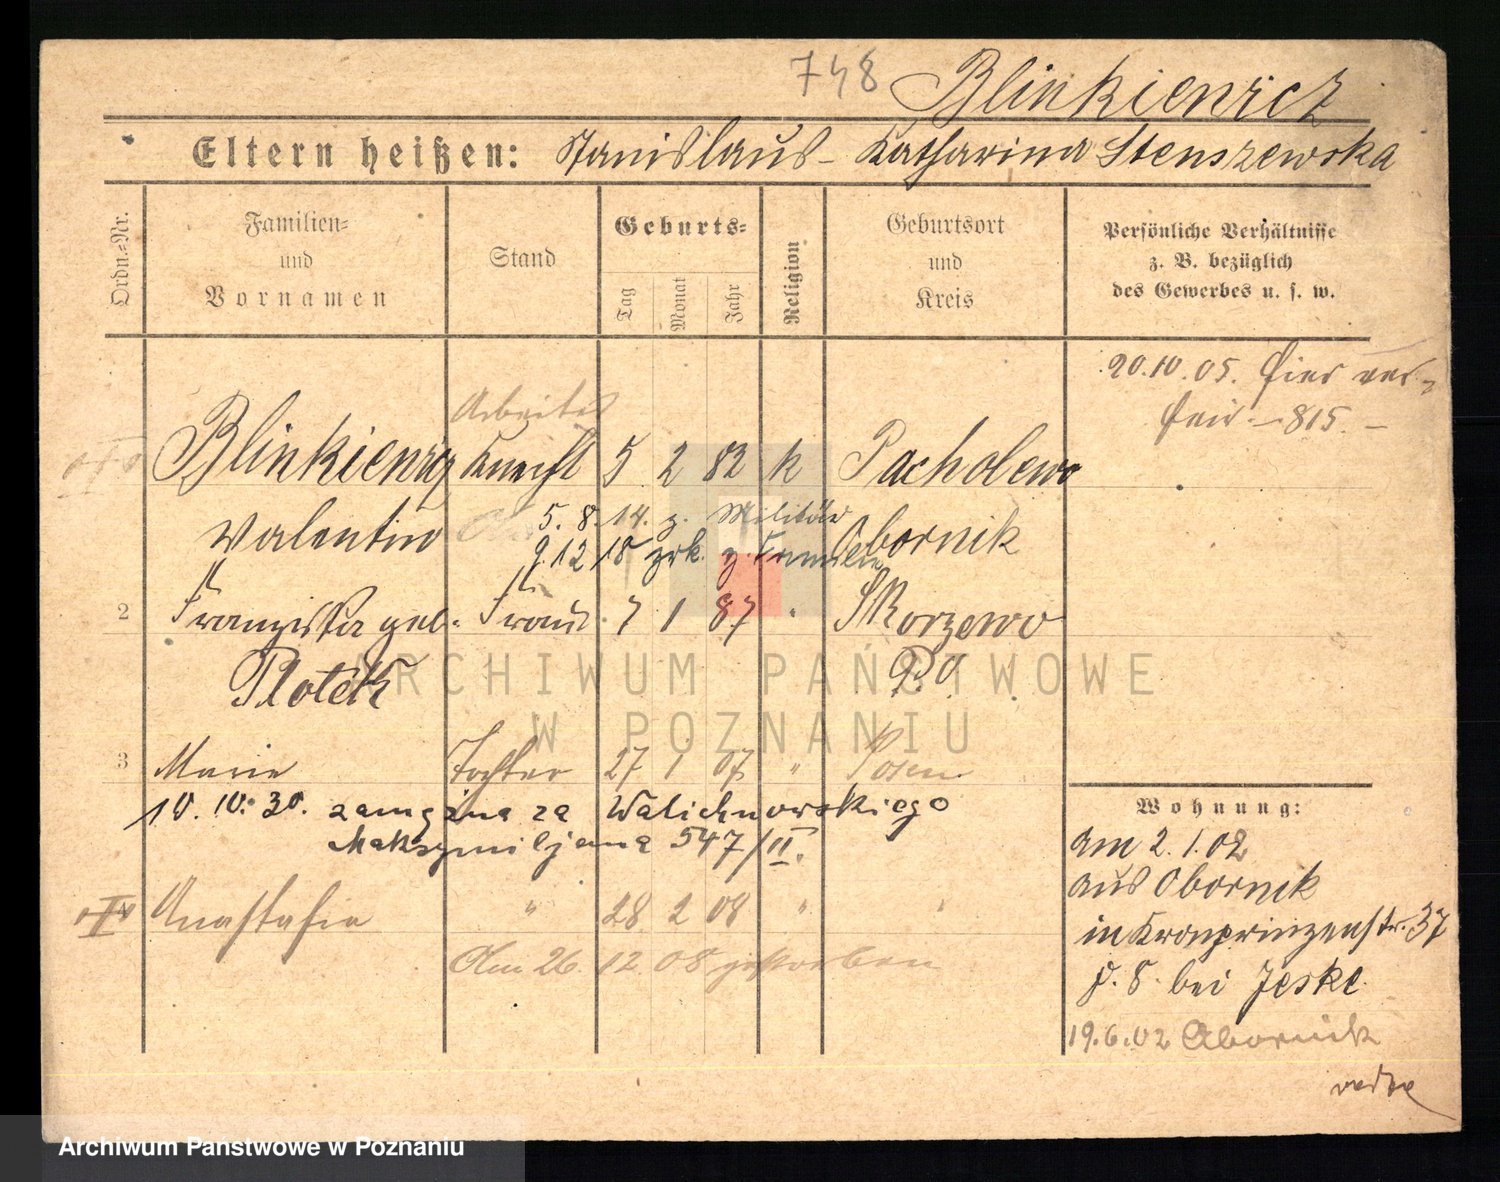 748 Blinkiewicz
Eltern heißen: Stanislaus - Katharina Stenszewska
Ordn.-Nr.
Familien-
und
Vornamen
Stand
Geburts-
Tag
Monat
Jahr
Religion
Geburtsort
und
Kreis
Persönliche Verhältnisse
z. B. bezüglich
des Gewerbes u. s. w.
20.10.05. hier ver-
heir. - 815. -
Arbeiter
Blinkiewicz Knecht 5 2 82 k Pacholewo
Valentin Obornik
5. 8. 14. z. Militär
9.12 18 zrk. z. Familie
2 Franziska geb. Frau 7 1 87 " Skorzewo
Plotek P.O.
3 Marie Tochter 27 1 07 " Posen
10. 10. 30. zamężna za Walichnowskiego
Maksymiljana 547/II.
4 Anastasia " 28 2 08 " "
Am 26. 12 08 gestorben
Wohnung:
am 2.1.02
aus Obornik
in Kronprinzenstr. 37
bei Jeske
19.6.02 Obornik
ARCHIWUM PAŃSTWOWE
W POZNANIU
Archiwum Państwowe w Poznaniu